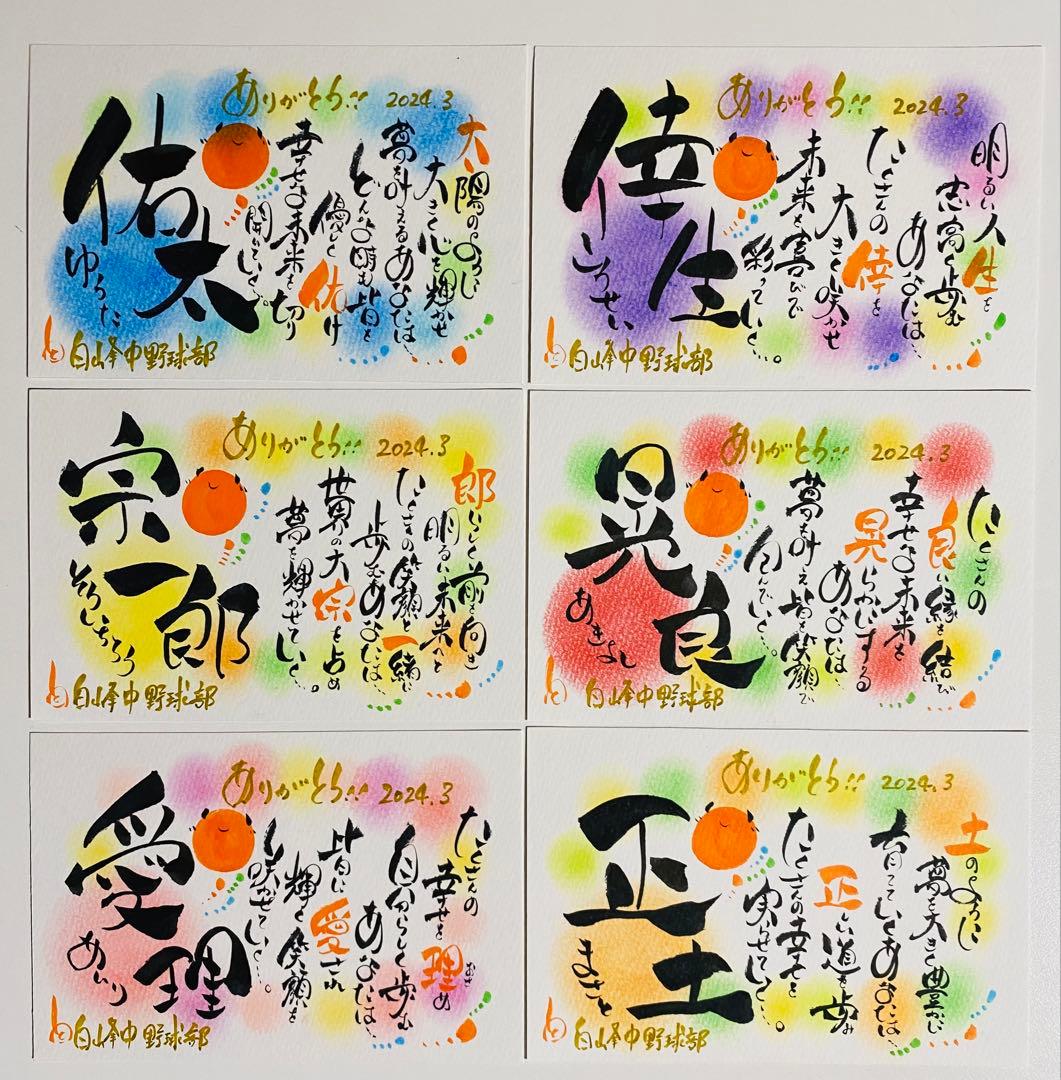 ありがとう!! 2024.3
佑太
ゆうた
太陽のように
大きく心を輝かせ
夢を叶えるあなたは…
どんな時も皆を
優しく佑け
幸せな未来を切り
開いていく。
白峰中野球部
ありがとう!! 2024.3
倖生
こうせい
明るい人生を
志高く歩む
あなたは…
たくさんの倖を
大きく咲かせ
未来を喜びで
彩っていく…。
白峰中野球部
ありがとう!! 2024.3
宗一郎
そういちろう
郎らしく前を向き
明るい未来へと
歩むあなたは…
たくさんの笑顔と一緒に
世界の大宗を占め
夢を輝かせていく…。
白峰中野球部
ありがとう!! 2024.3
晃良
あきよし
たくさんの
良い縁を結び
幸せな未来を
晃らかにする
あなたは…
夢を叶え皆を笑顔で
包んでいく…。
白峰中野球部
ありがとう!! 2024.3
愛理
あいり
たくさんの
幸せを理め
おさ
自分らしく歩む
あなたは…
皆に愛され
輝く笑顔を
咲かせていく…。
白峰中野球部
ありがとう!! 2024.3
正土
まさと
土のように
夢を大きく豊かに
育てていくあなたは…
正しい道を歩み
たくさんの幸せを
実らせていく…。
白峰中野球部